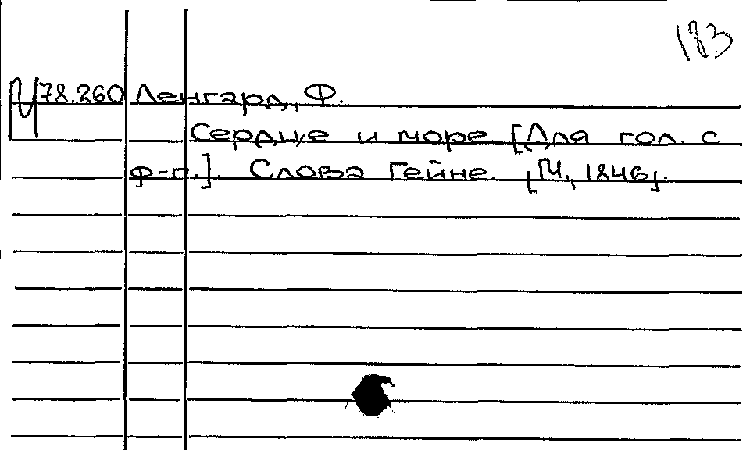 183
И78.260 Ленгард, Ф.
Сердце и море [Для гол. с
ф-п.]. Слова Гейне. [М, 1846].